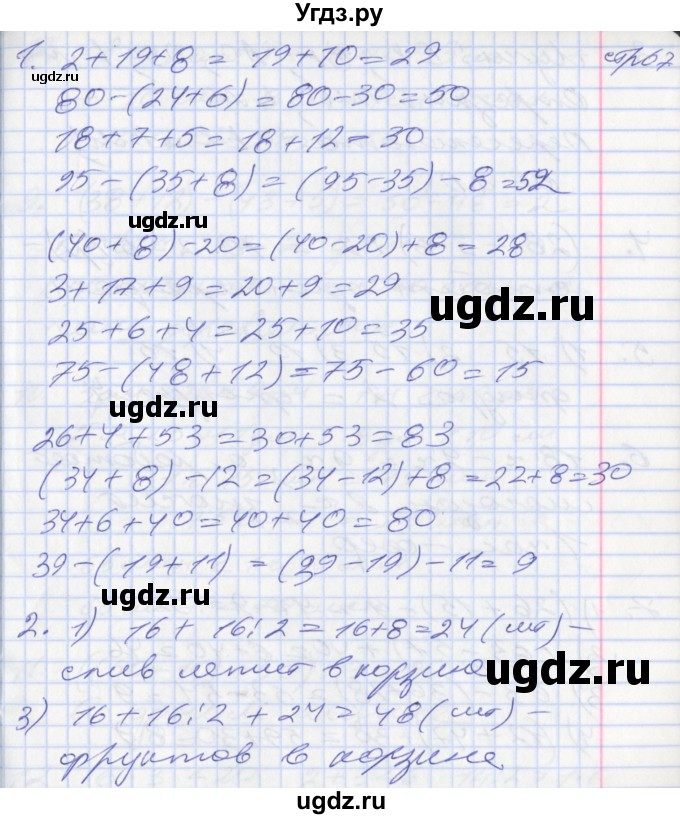 Угдз.ру
стр67
1. 2+19+8 = 19+10=29
80-(24+6) = 80-30=50
18+7+5=18+12=30
95-(35+8)=(95-35)-8=52
ugdz.ru
(40+8)-20=(40-20)+8=28
3+17+9=20+9=29
ugdz.ru
25+6+4=25+10=35
75-(48+12)=75-60=15
ugdz.ru
26+4+53=30+53=83
(34+8)-12=(34-12)+8=22+8=30
34+6+40=40+40=80
39-(19+11)=(39-19)-11=9
ugdz.ru
2. 1) 16+16:2=16+8=24(шт)-
слив лежит в корзине
ugdz.ru
3) 16+16:2+24=48(шт)-
ugdz.ru
фруктов в корзине.
ugdz.ru